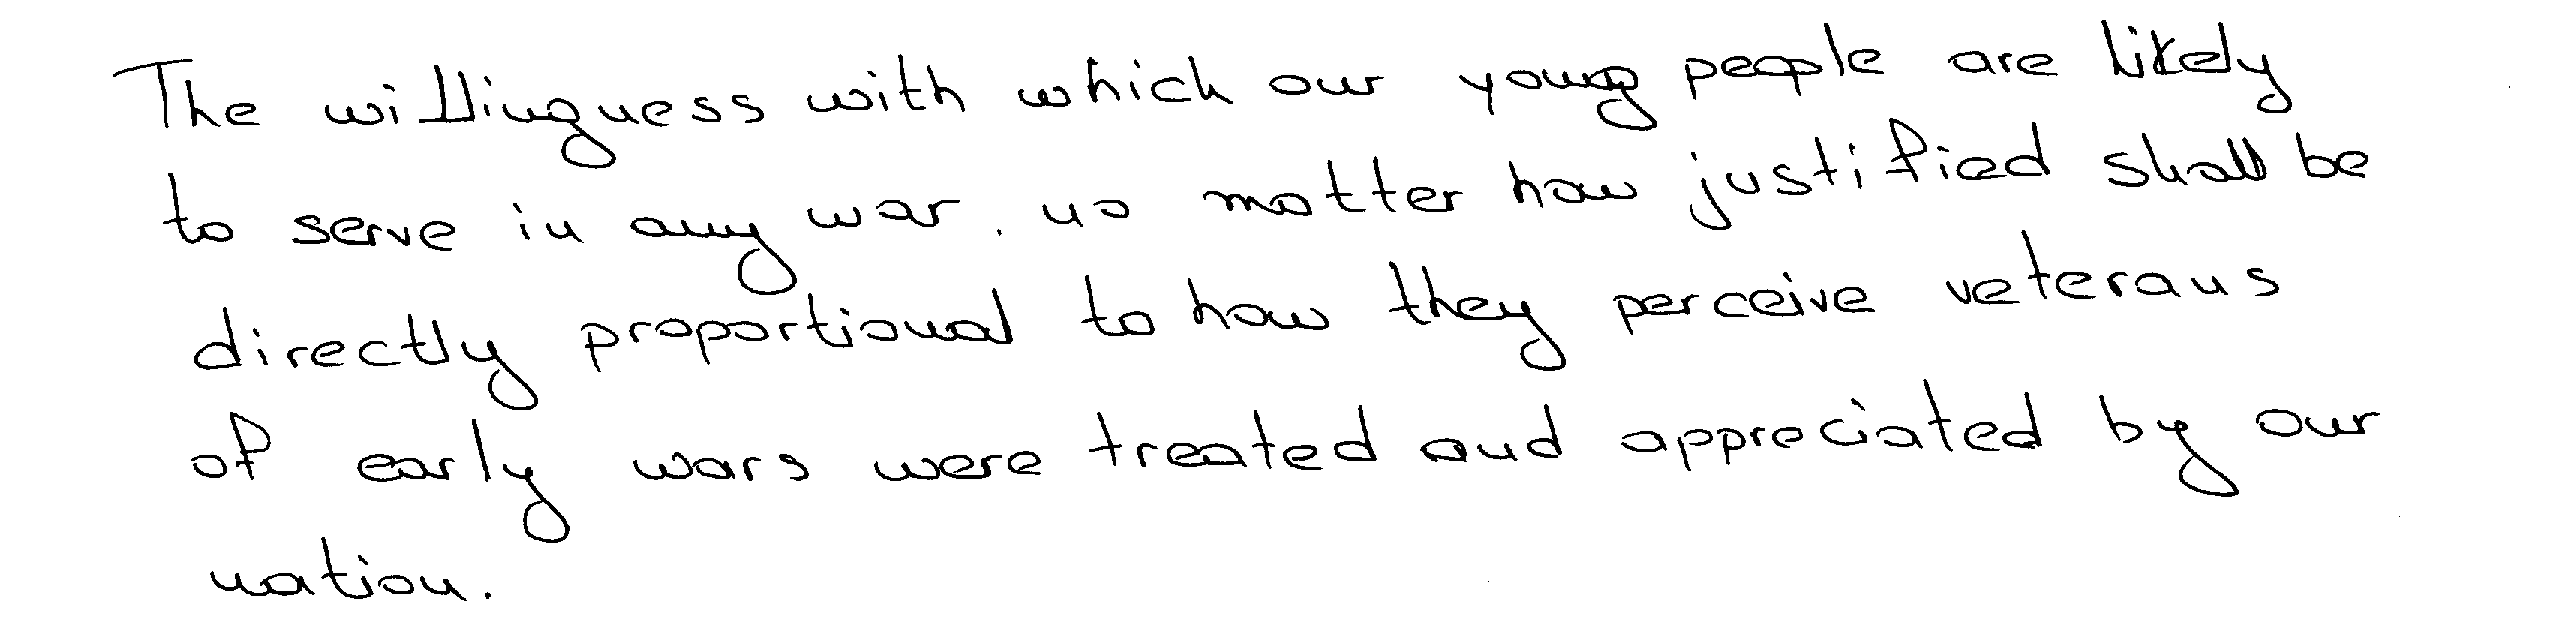 The willingness with which our young people are likely
to serve in any war, no matter how justified shall be
directly proportional to how they perceive veterans
of early wars were treated and appreciated by our
nation.